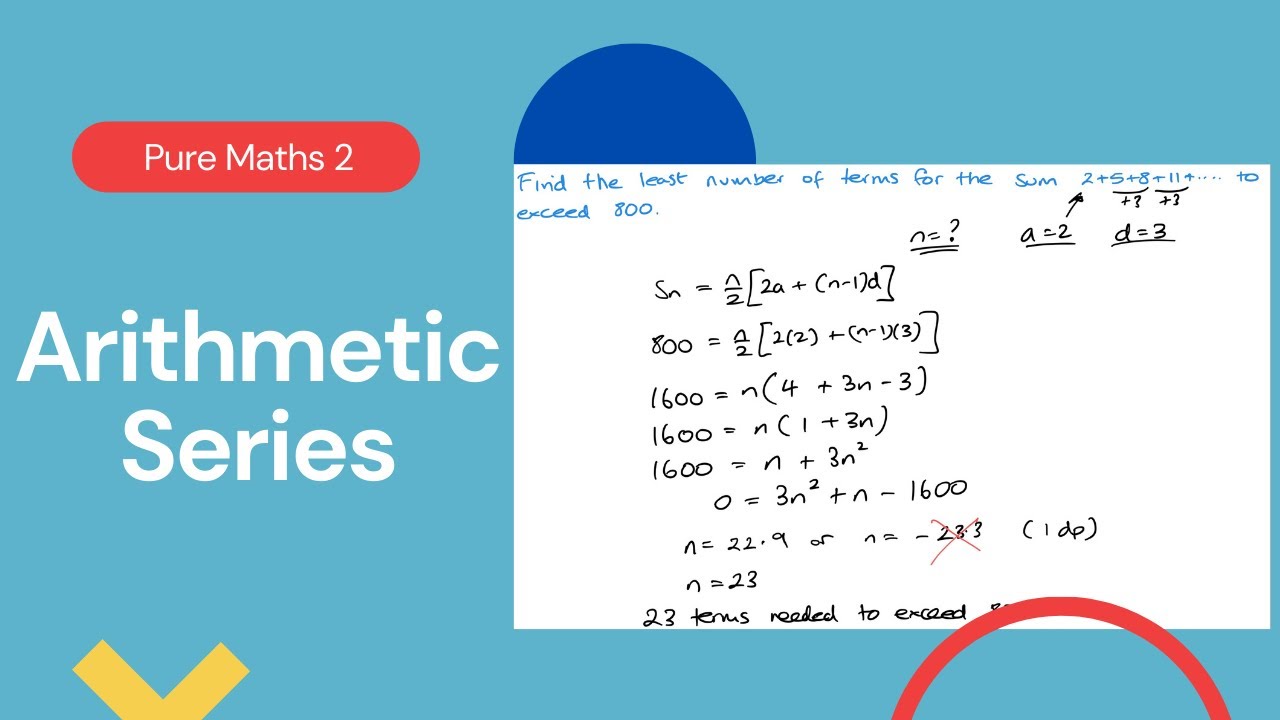 Pure Maths 2
Arithmetic
Series
Find the least number of terms for the sum 2+5+8+11+.... to
exceed 800.
+3 +3
n=? a=2 d=3
Sn = n/2[2a + (n-1)d]
800 = n/2[2(2) + (n-1)(3)]
1600 = n(4 + 3n - 3)
1600 = n(1 + 3n)
1600 = n + 3n²
0 = 3n² + n - 1600
n = 22.9 or n = -23.3 (1 dp)
n = 23
23 terms needed to exceed